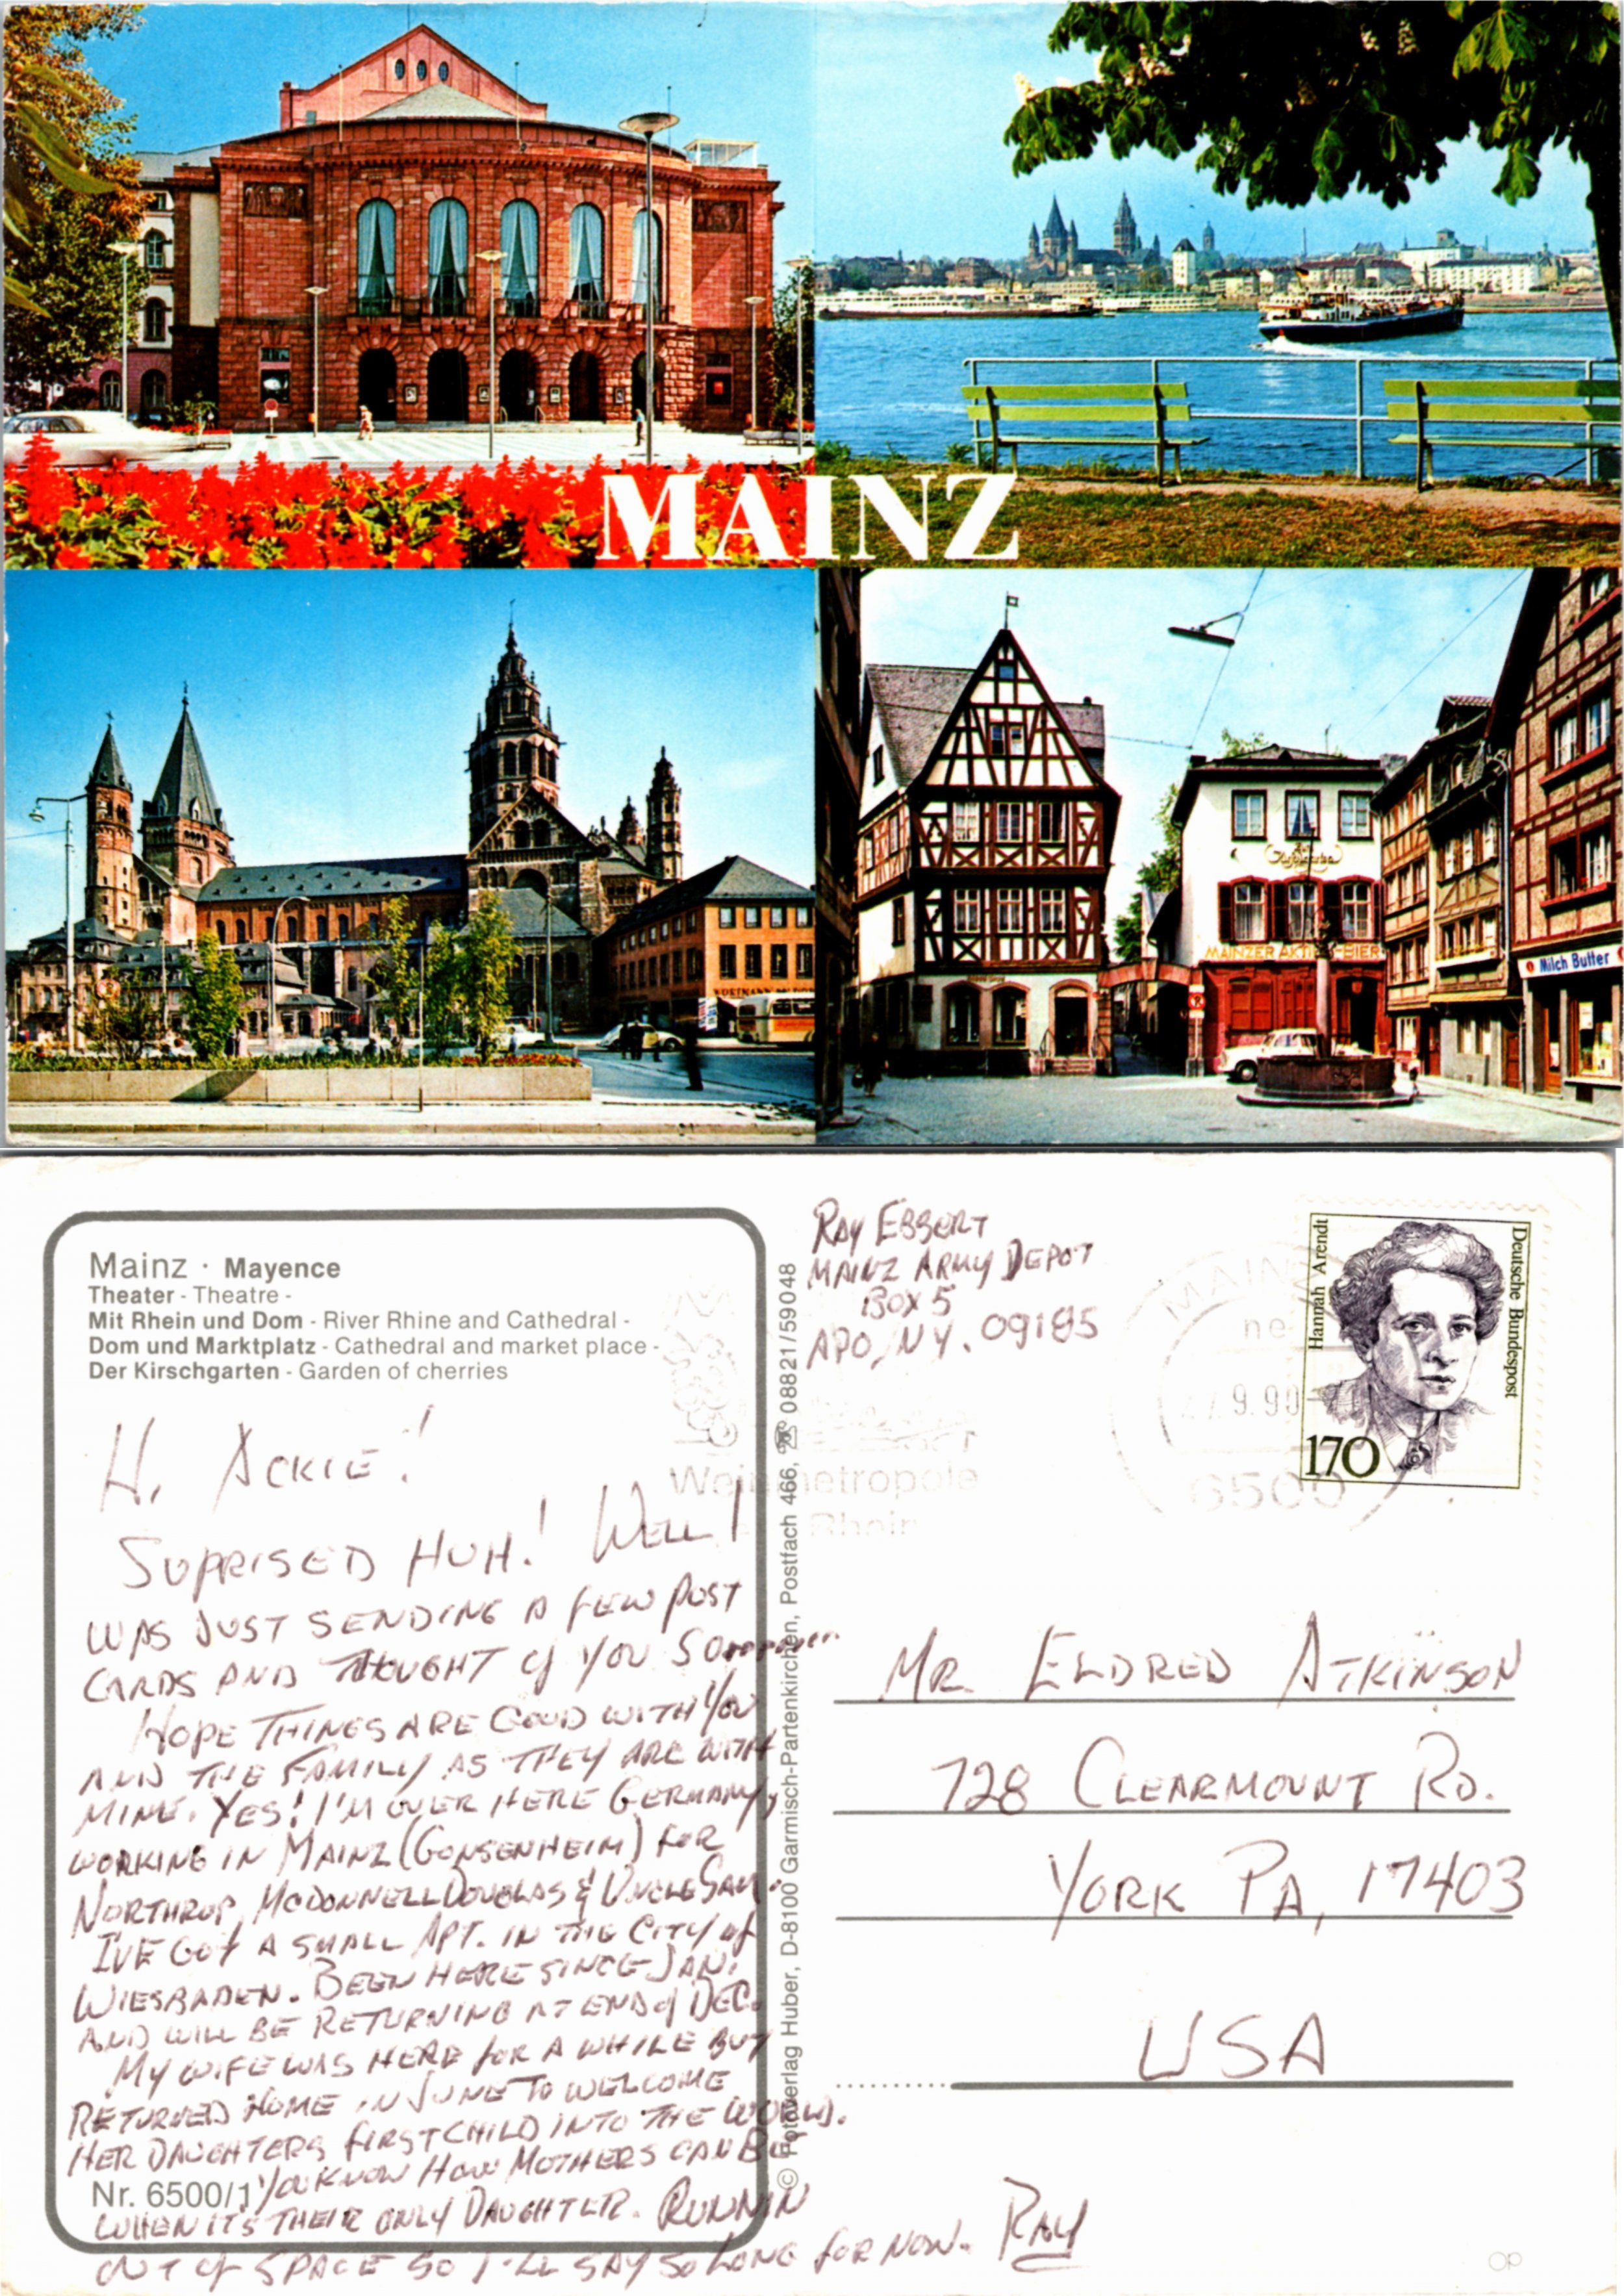 MAINZ
MAINZER AKTIEN-BIER
Milch Butter
Mainz · Mayence
Theater - Theatre -
Mit Rhein und Dom - River Rhine and Cathedral -
Dom und Marktplatz - Cathedral and market place -
Der Kirschgarten - Garden of cherries
HI ACKIE!
SUPRISED HUH! WELL I
WAS JUST SENDING A FEW POST
CARDS AND THOUGHT of YOU SO
HOPE THINGS ARE GOOD WITH YOU
AND THE FAMILY AS THEY ARE WITH
MINE. YES! I'M OVER HERE GERMANY,
WORKING IN MAINZ (GONSENHEIM) FOR
NORTHROP, MCDONNELL DOUGLAS & UNCLE SAM.
I'VE GOT A SMALL APT. IN THE CITY of
WIESBADEN. BEEN HERE SINCE JAN.
AND WILL BE RETURNING AT END of DEC.
MY WIFE WAS HERE FOR A WHILE BUT
RETURNED HOME IN JUNE TO WELCOME
HER DAUGHTERS FIRST CHILD INTO THE WORLD.
YOU KNOW HOW MOTHERS CAN BE
Nr. 6500/1
WHEN IT'S THEIR ONLY DAUGHTER. RUNNIN
OUT of SPACE SO I'LL SAY SO LONG FOR NOW. RAY
© Fotoverlag Huber, D-8100 Garmisch-Partenkirchen, Postfach 466, ☏ 08821/59048
RAY EBBERT
MAINZ ARMY DEPOT
BOX 5
APO, NY. 09185
Weinmetropole
Rhein
MAINZ
9.90
6500
Hannah Arendt
Deutsche Bundespost
170
MR. ELDRED ATKINSON
728 CLEARMOUNT RD.
YORK PA, 17403
USA